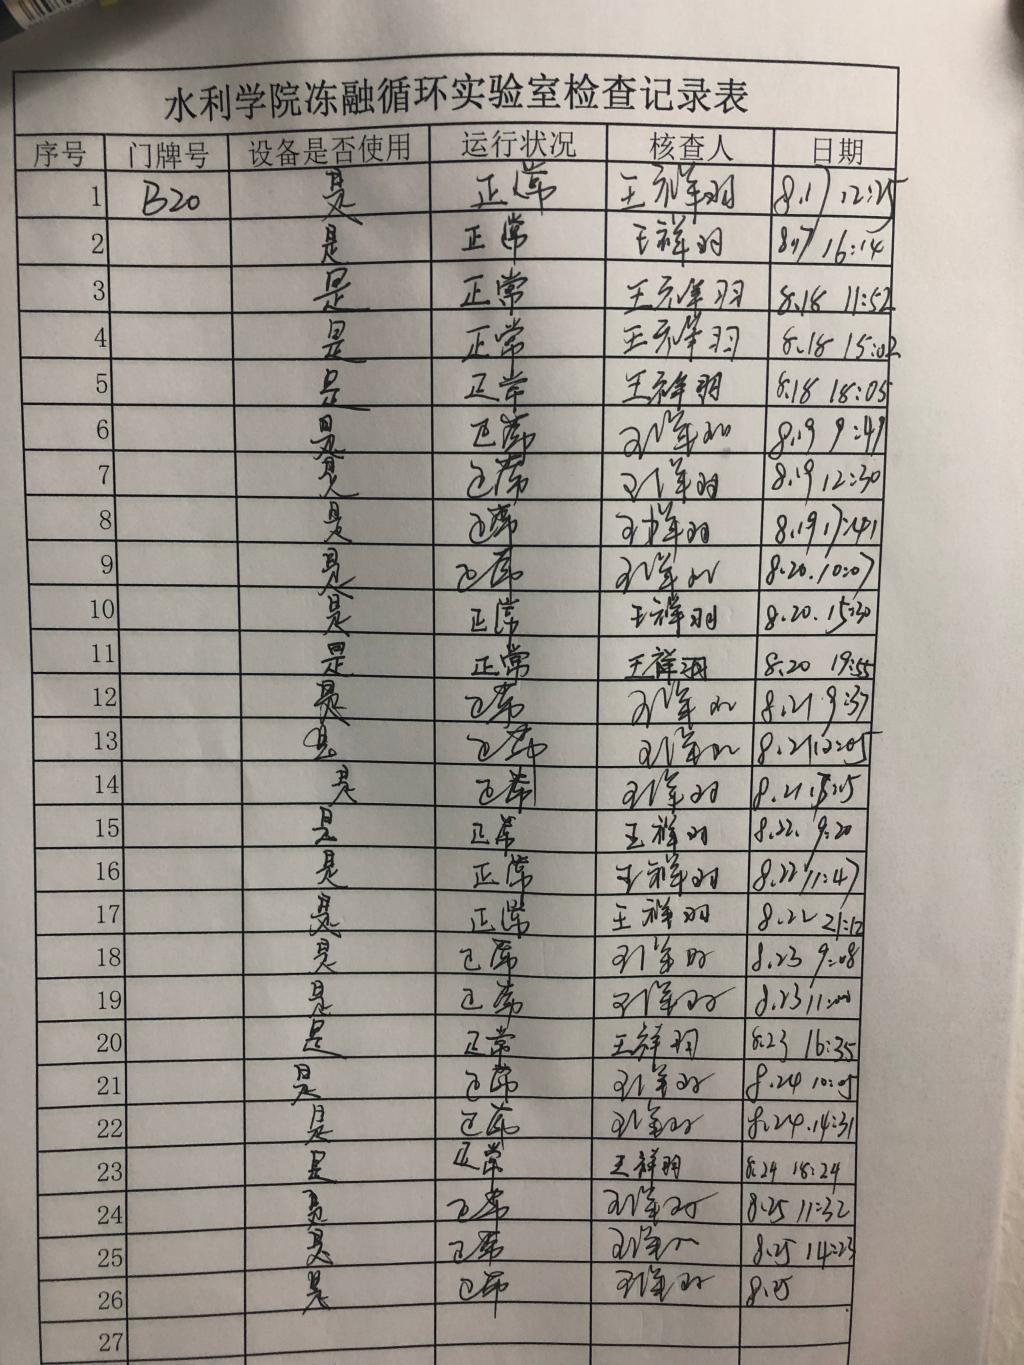 水利学院冻融循环实验室检查记录表
序号 门牌号 设备是否使用 运行状况 核查人 日期
1 B20 是 正常 王祥羽 8.17 12:25
2 是 正常 王祥羽 8.17 16:14
3 是 正常 王祥羽 8.18 11:52
4 是 正常 王祥羽 8.18 15:02
5 是 正常 王祥羽 8.18 18:05
6 是 正常 王祥羽 8.19 9:49
7 是 正常 王祥羽 8.19 12:30
8 是 正常 王祥羽 8.19 17:41
9 是 正常 王祥羽 8.20. 10:07
10 是 正常 王祥羽 8.20. 15:30
11 是 正常 王祥羽 8.20 19:55
12 是 正常 王祥羽 8.21 9:37
13 是 正常 王祥羽 8.21 12:05
14 是 正常 王祥羽 8.21
15 是 正常 王祥羽 8.22. 9:20
16 是 正常 王祥羽 8.22 11:47
17 是 正常 王祥羽 8.22 21:12
18 是 正常 王祥羽 8.23 9:08
19 是 正常 王祥羽 8.23 11:00
20 是 正常 王祥羽 8.23 16:35
21 是 正常 王祥羽 8.24 10:05
22 是 正常 王祥羽 8.24.14:31
23 是 正常 王祥羽 8.24 18:24
24 是 正常 王祥羽 8.25 11:32
25 是 正常 王祥羽 8.25 14:23
26 是 正常 王祥羽 8.25
27